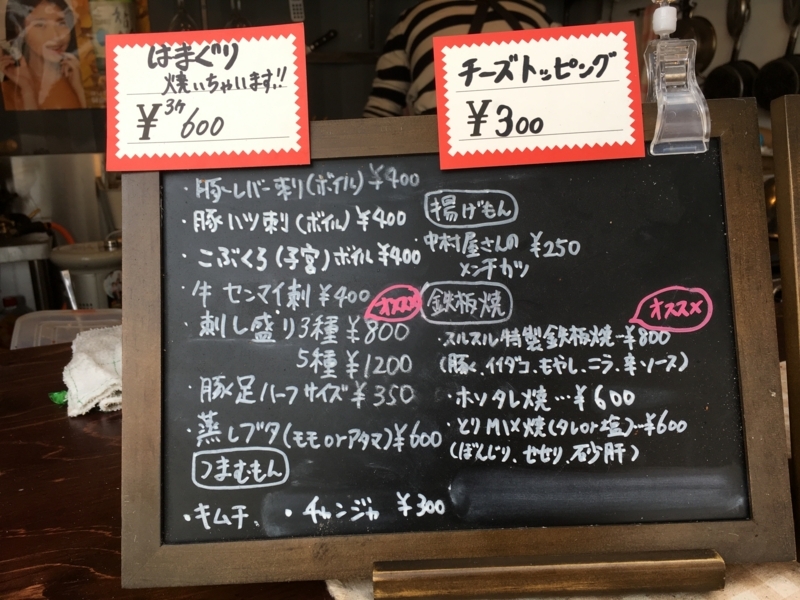 はまぐり
焼いちゃいます!!
¥3ケ600
チーズトッピング
¥300
・豚レバー刺し(ボイル)¥400
・豚ハツ刺(ボイル)¥400
・こぶくろ(子宮)ボイル¥400
・牛センマイ刺¥400
オススメ
・刺し盛り3種¥800
5種¥1200
・豚足ハーフサイズ¥350
・蒸しブタ(モモorアタマ)¥600
つまむもん
・キムチ、・チャンジャ ¥300
揚げもん
・中村屋さんの
メンチカツ ¥250
鉄板焼
オススメ
・スルスル特製鉄板焼…¥800
(豚、イイダコ、もやし、ニラ、辛ソース)
・ホソタレ焼…¥600
・とりMIX焼(タレor塩)…¥600
(ぼんじり、セセリ、砂肝)